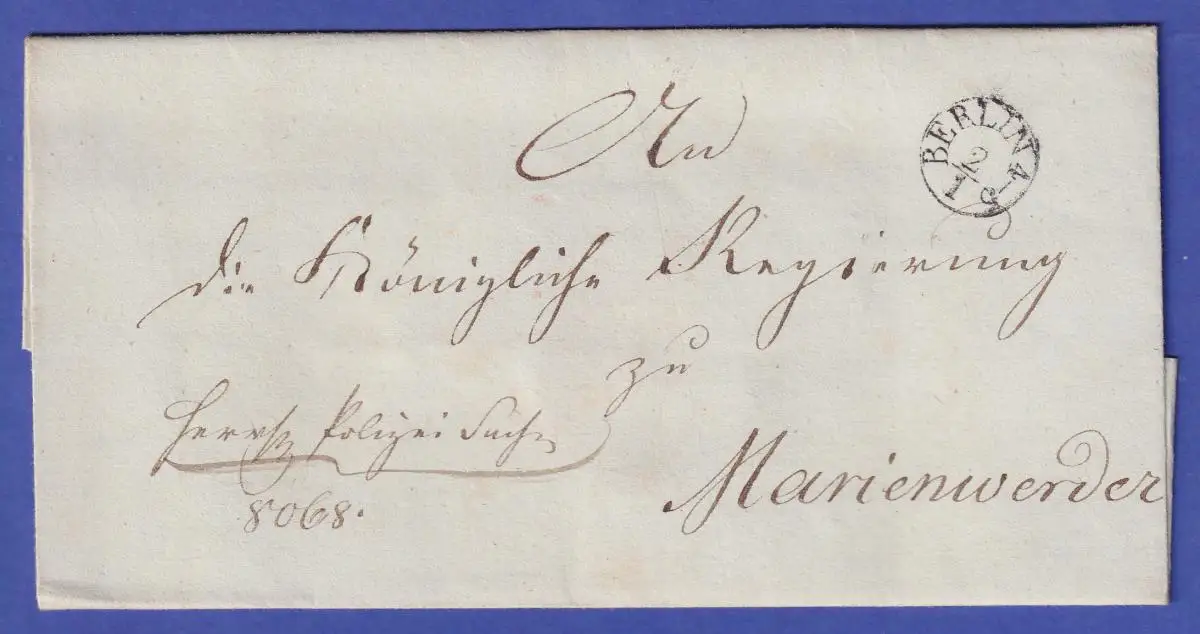 BERLIN 4
2/1
An
die Königliche Regierung
zu
Polizei Sache
Marienwerder
8068.